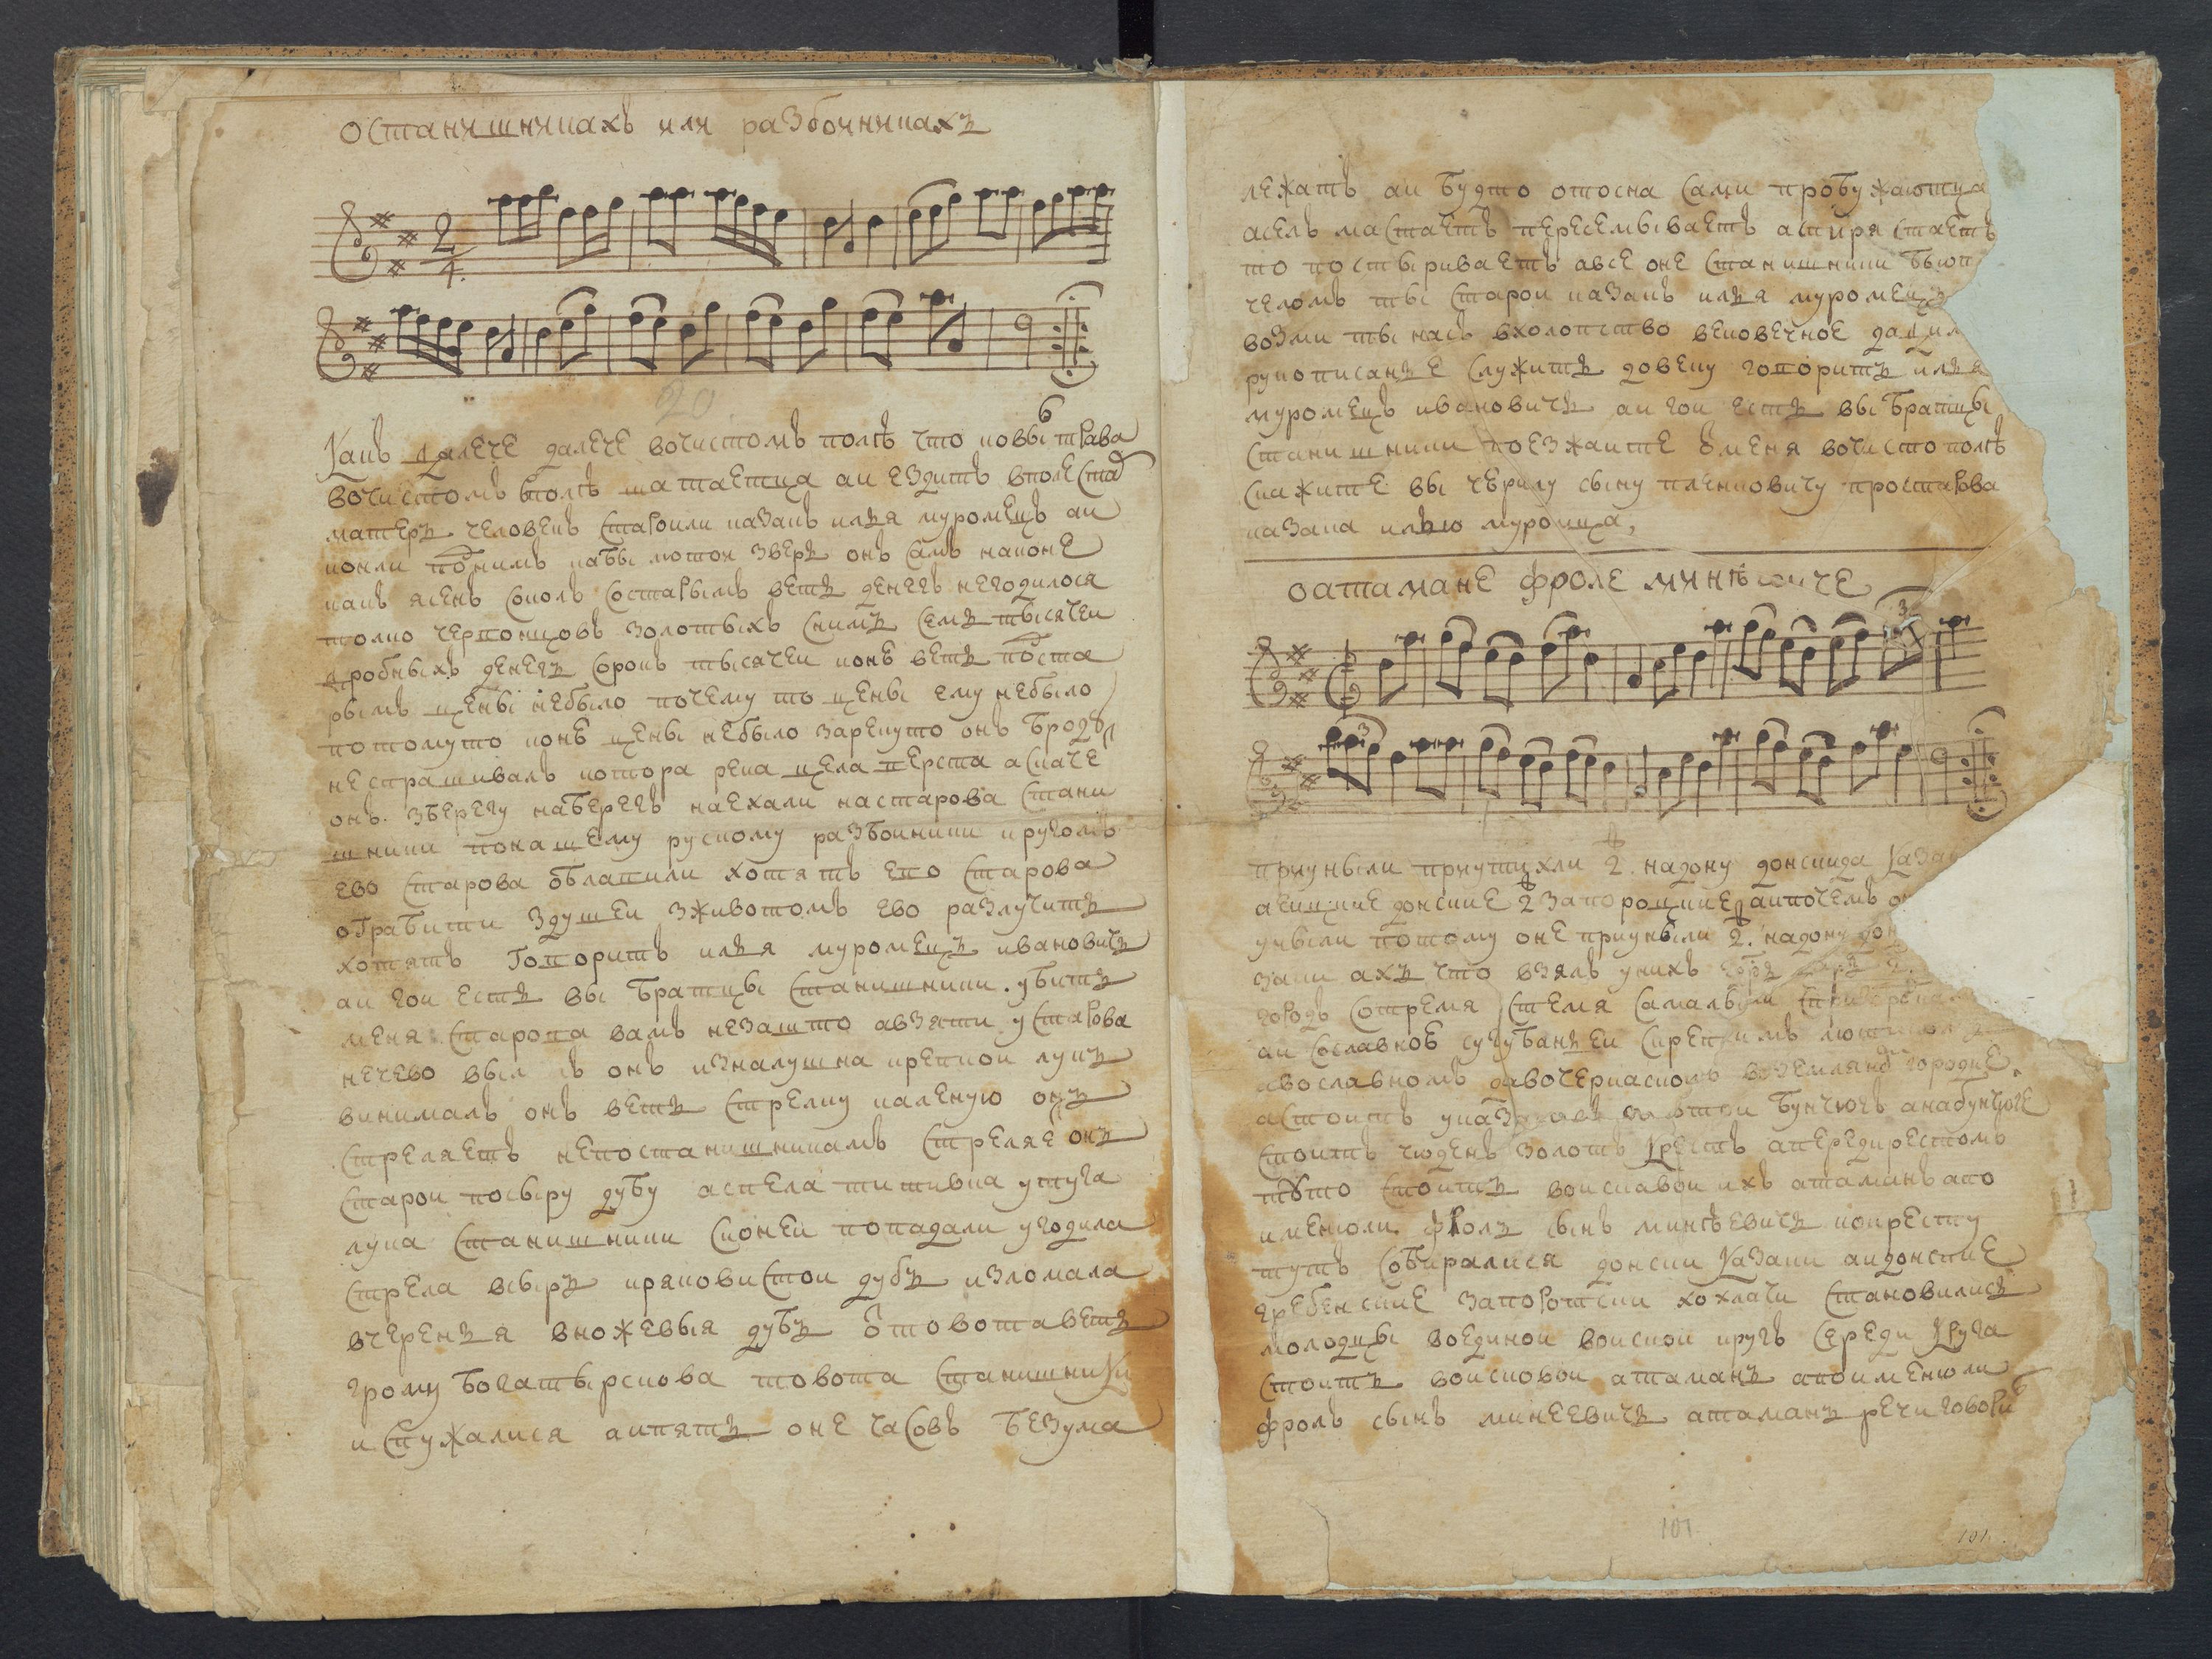 останишникахъ или разбоиникахъ
2
4
20
6
Какъ далече далече вочистомъ полѣ что ковы трава
вочистомъ полѣ шатаетца аи ездитъ вполе ста
матеръ человекъ староили казакъ илья муромецъ аи
конли поднимъ кабы лютои зверь онъ самъ наконе
какъ ясенъ соколъ состарымъ веть денегъ негодилося
толко червонцовъ золотыхъ снимъ семь тысячеи
дробныхъ денегъ сорокъ тысячеи коне веть подста
рымъ цены небыло почему то цены ему небыло
потомуто коне цены небыло зарекуто онъ броду
неспрашивалъ котора река цела верста аскаче
онъ зберегу наберегъ наехали настарова стани
шники понашему рускому разбоиники кругомъ
ево старова облавили хотятъ ево старова
ограбити здушеи зживотомъ ево разлучить
хотятъ говоритъ илья муромецъ ивановичь
аи гои есть вы братцы станишники убить
меня старова вамъ незашто авзяти устарова
нечево вынялъ онъ изналушна крепкои лукъ
винималъ онъ веть стрелку каленую онъ
стреляетъ непостанишникамъ стреляе онъ
старои посыру дубу аспела титивка утуга
лука станишники сконеи попадали угодила
стрела всыръ кряковистои дубъ изломала
вчеренья вножевыя дубъ отовотаветь
грому богатырскова товота станишники
испужалися аипять оне часовъ безума
лежатъ аи будто отосна сами пробужаютца
аселъ мастаетъ пересемываетъ аспиря стаетъ
то постыриваетъ авсе оне станишники бьют
челомъ ты старои казакъ илья муромецъ
возми ты насъ вхолопство вековечное дади
рукописанье служить довеку говоритъ илья
муромецъ ивановичь аи гои есть вы братцы
станишники поезжаите ѿменя вочисто полѣ
скажите вы чюрилу сыну пленковичу простарова
казака илью муромца,
оатамане фроле минѣевиче
3
3
приуныли приутихли 2. надону донскида казаки
аеицкие донские 2 запорощкие аипочемъ он
уныли потому оне приуныли 2. надону дон
заки ахъ что взялъ унихъ
городъ сотремя стемя самалыми
аи сославною кубаньеи скрепкимъ
авославномъ давочеркаскомъ воземляно городке
астоитъ указаковъ золотои бунчюгъ анабунчюге
стоитъ чюденъ золотъ крестъ апередкрестомъ
туто стоитъ воисковои ихъ атаманъ апо
именюли фролъ сынъ минѣевичь кокресту
тутъ собиралися донски казаки аидонские
гребенские запоротски хохлачи становились
молодцы воединои воискои кругъ среди круга
стоитъ воисковои атаманъ апоименюли
фролъ сынъ минеевичь атаманъ речи говори
101
101